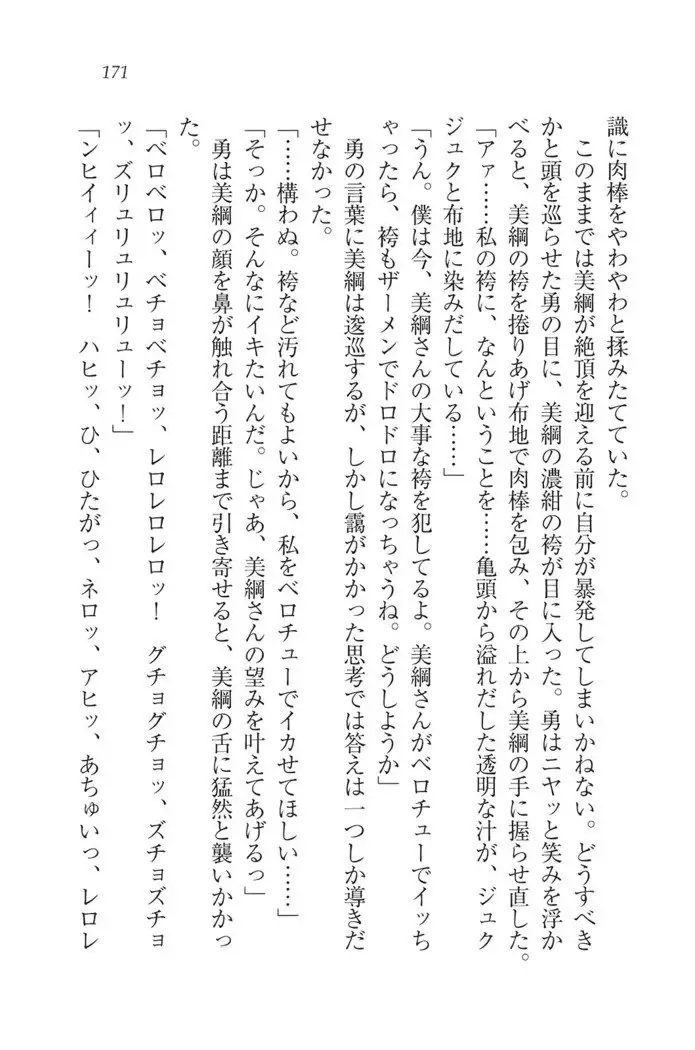 171
識に肉棒をやわやわと揉みたてていた。
　このままでは美綱が絶頂を迎える前に自分が暴発してしまいかねない。どうすべき
かと頭を巡らせた勇の目に、美綱の濃紺の袴が目に入った。勇はニヤッと笑みを浮か
べると、美綱の袴を捲りあげ布地で肉棒を包み、その上から美綱の手に握らせ直した。
「アァ……私の袴に、なんということを……亀頭から溢れだした透明な汁が、ジュク
ジュクと布地に染みだしている……」
「うん。僕は今、美綱さんの大事な袴を犯してるよ。美綱さんがベロチューでイッち
ゃったら、袴もザーメンでドロドロになっちゃうね。どうしようか」
　勇の言葉に美綱は逡巡するが、しかし靄がかかった思考では答えは一つしか導きだ
せなかった。
「……構わぬ。袴など汚れてもよいから、私をベロチューでイカせてほしい……」
「そっか。そんなにイキたいんだ。じゃあ、美綱さんの望みを叶えてあげるっ」
　勇は美綱の顔を鼻が触れ合う距離まで引き寄せると、美綱の舌に猛然と襲いかかっ
た。
「ベロベロッ、ベチョベチョッ、レロレロレロッ！　グチョグチョッ、ズチョズチョ
ッ、ズリュリュリュリューッ！」
「ンヒイィィーッ！　ハヒッ、ひ、ひたがっ、ネロッ、アヒッ、あちゅいっ、レロレ